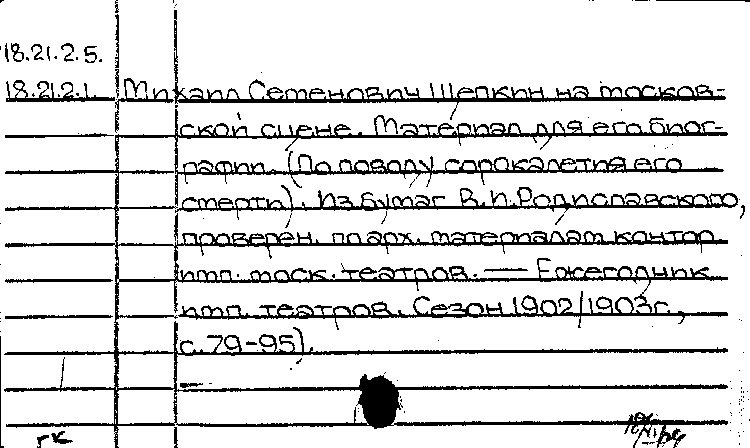 18.21.2.5.
18.21.2.1. Михаил Семенович Щепкин на москов-
ской сцене. Материал для его биог-
рафии. (По поводу сорокалетия его
смерти). Из бумаг В.И.Родиславского,
проверен. по арх. материалам контор
имп. моск. театров. — Ежегодник
имп. театров. Сезон 1902/1903г.,
с.79-95).
гк